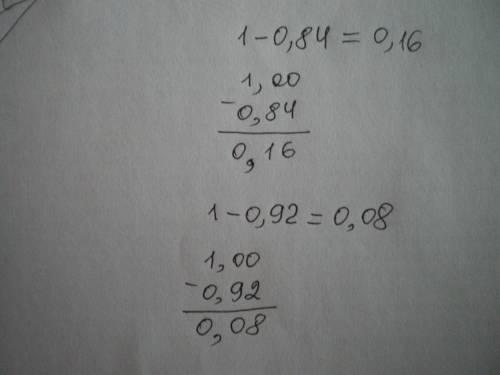 1-0,84=0,16
1,00
-0,84
0,16
1-0,92=0,08
1,00
-0,92
0,08